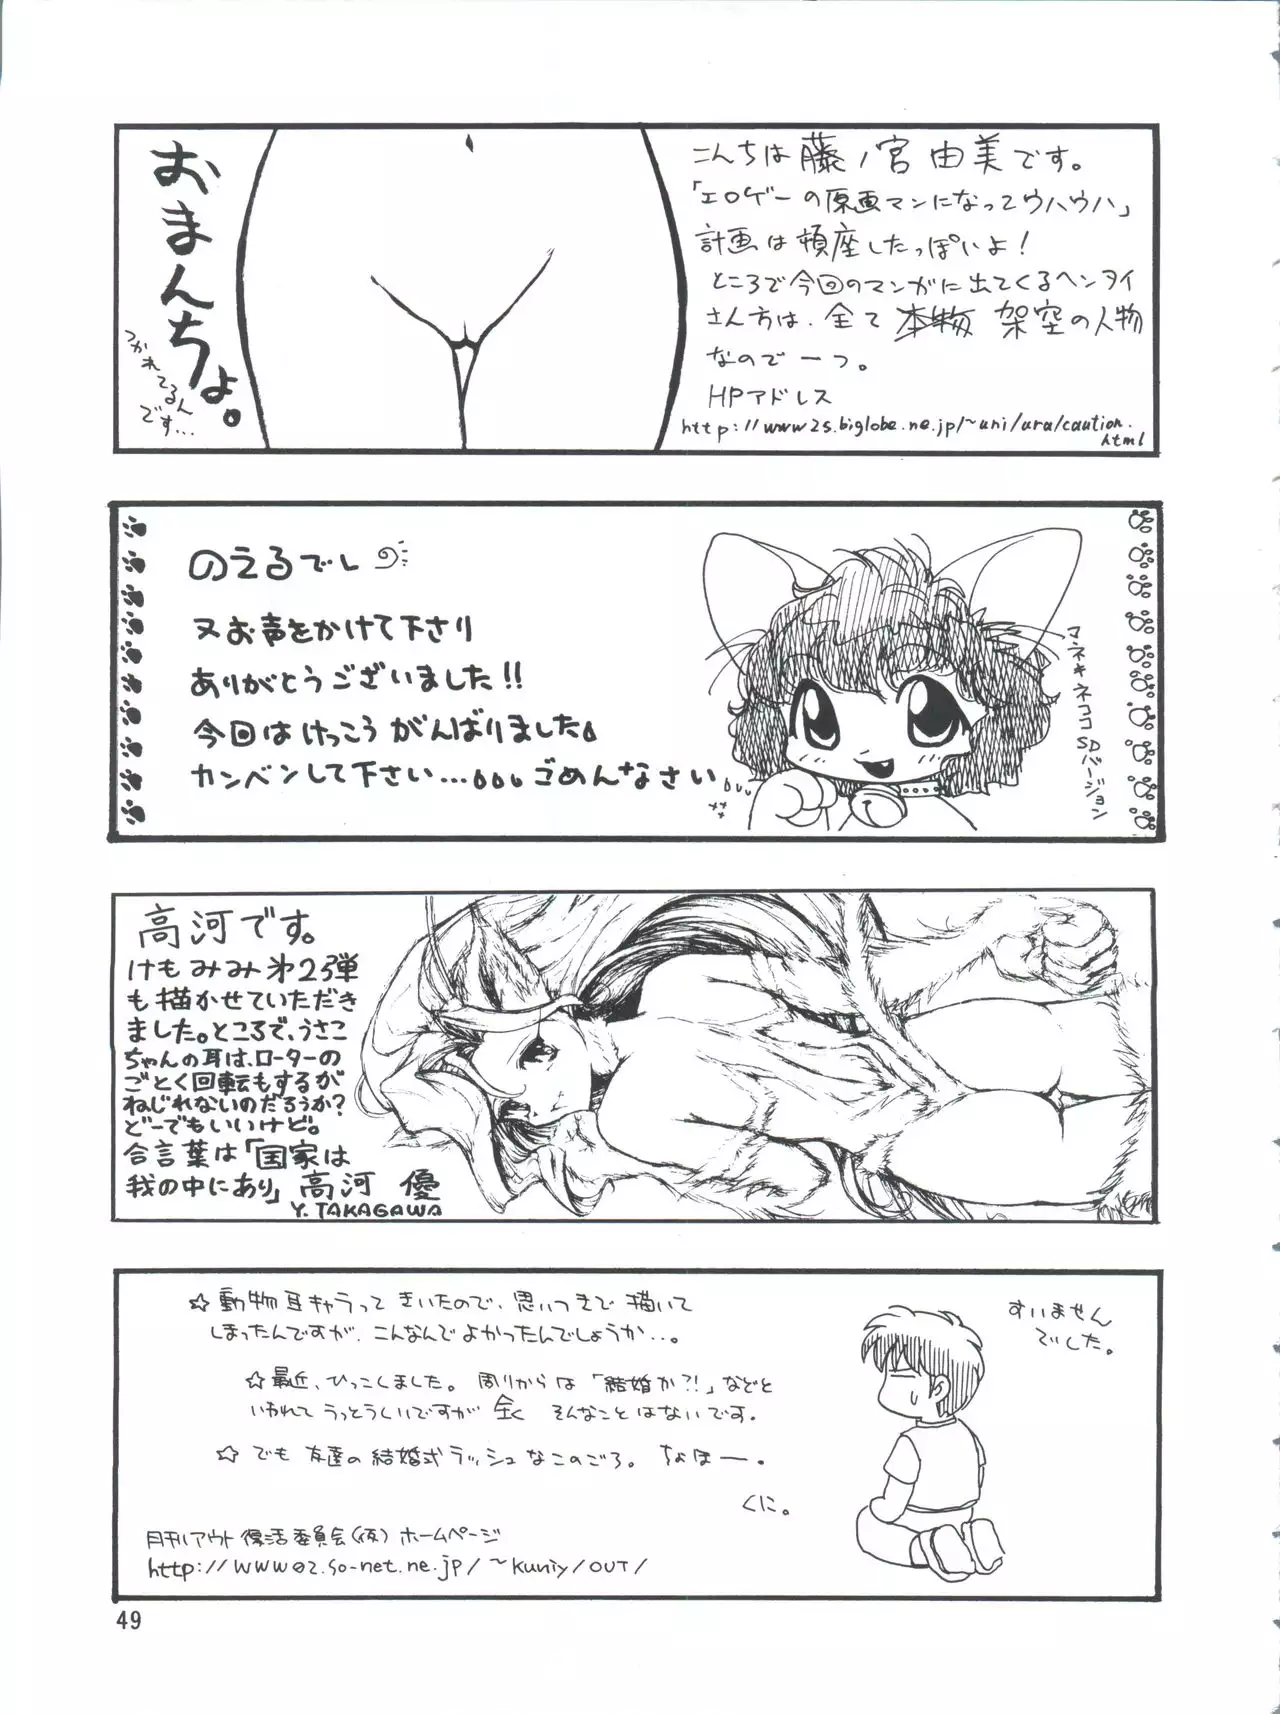 おまんちょ。
つかれてるん
です…
こんちは藤ノ宮由美です。
「エロゲーの原画マンになってウハウハ」
計画は頓座したっぽいよ！
ところで今回のマンガに出てくるヘンタイ
さん方は、全て本物 架空の人物
なのでーっ。
HPアドレス
http://www2s.biglobe.ne.jp/~uni/ura/caution.
html
のえるでし
又お声をかけて下さり
ありがとうございました!!
今回はけっこうがんばりました
カンベンして下さい…ごめんなさい
マネキネココ
SDバージョン
高河です。
けもみみ第2弾
も描かせていただき
ました。ところで、うさこ
ちゃんの耳は、ローターの
ごとく回転もするが
ねじれないのだろうか?
どーでもいいけど。
合言葉は「国家は
我の中にあり」高河 優
Y.TAKAGAWA
☆動物耳キャラってきいたので、思いつきで描いて
しまったんですが、こんなんでよかったんでしょうか…。
☆最近、ひっこしました。周りからは「結婚か?!」などと
いわれてうっとうしいですが全く そんなことはないです。
☆でも友達の結婚式ラッシュなこのごろ。ちょほー。
くに。
すいません
でした。
月刊アウト復活委員会(仮)ホームページ
http://www02.so-net.ne.jp/~kuniy/OUT/
49